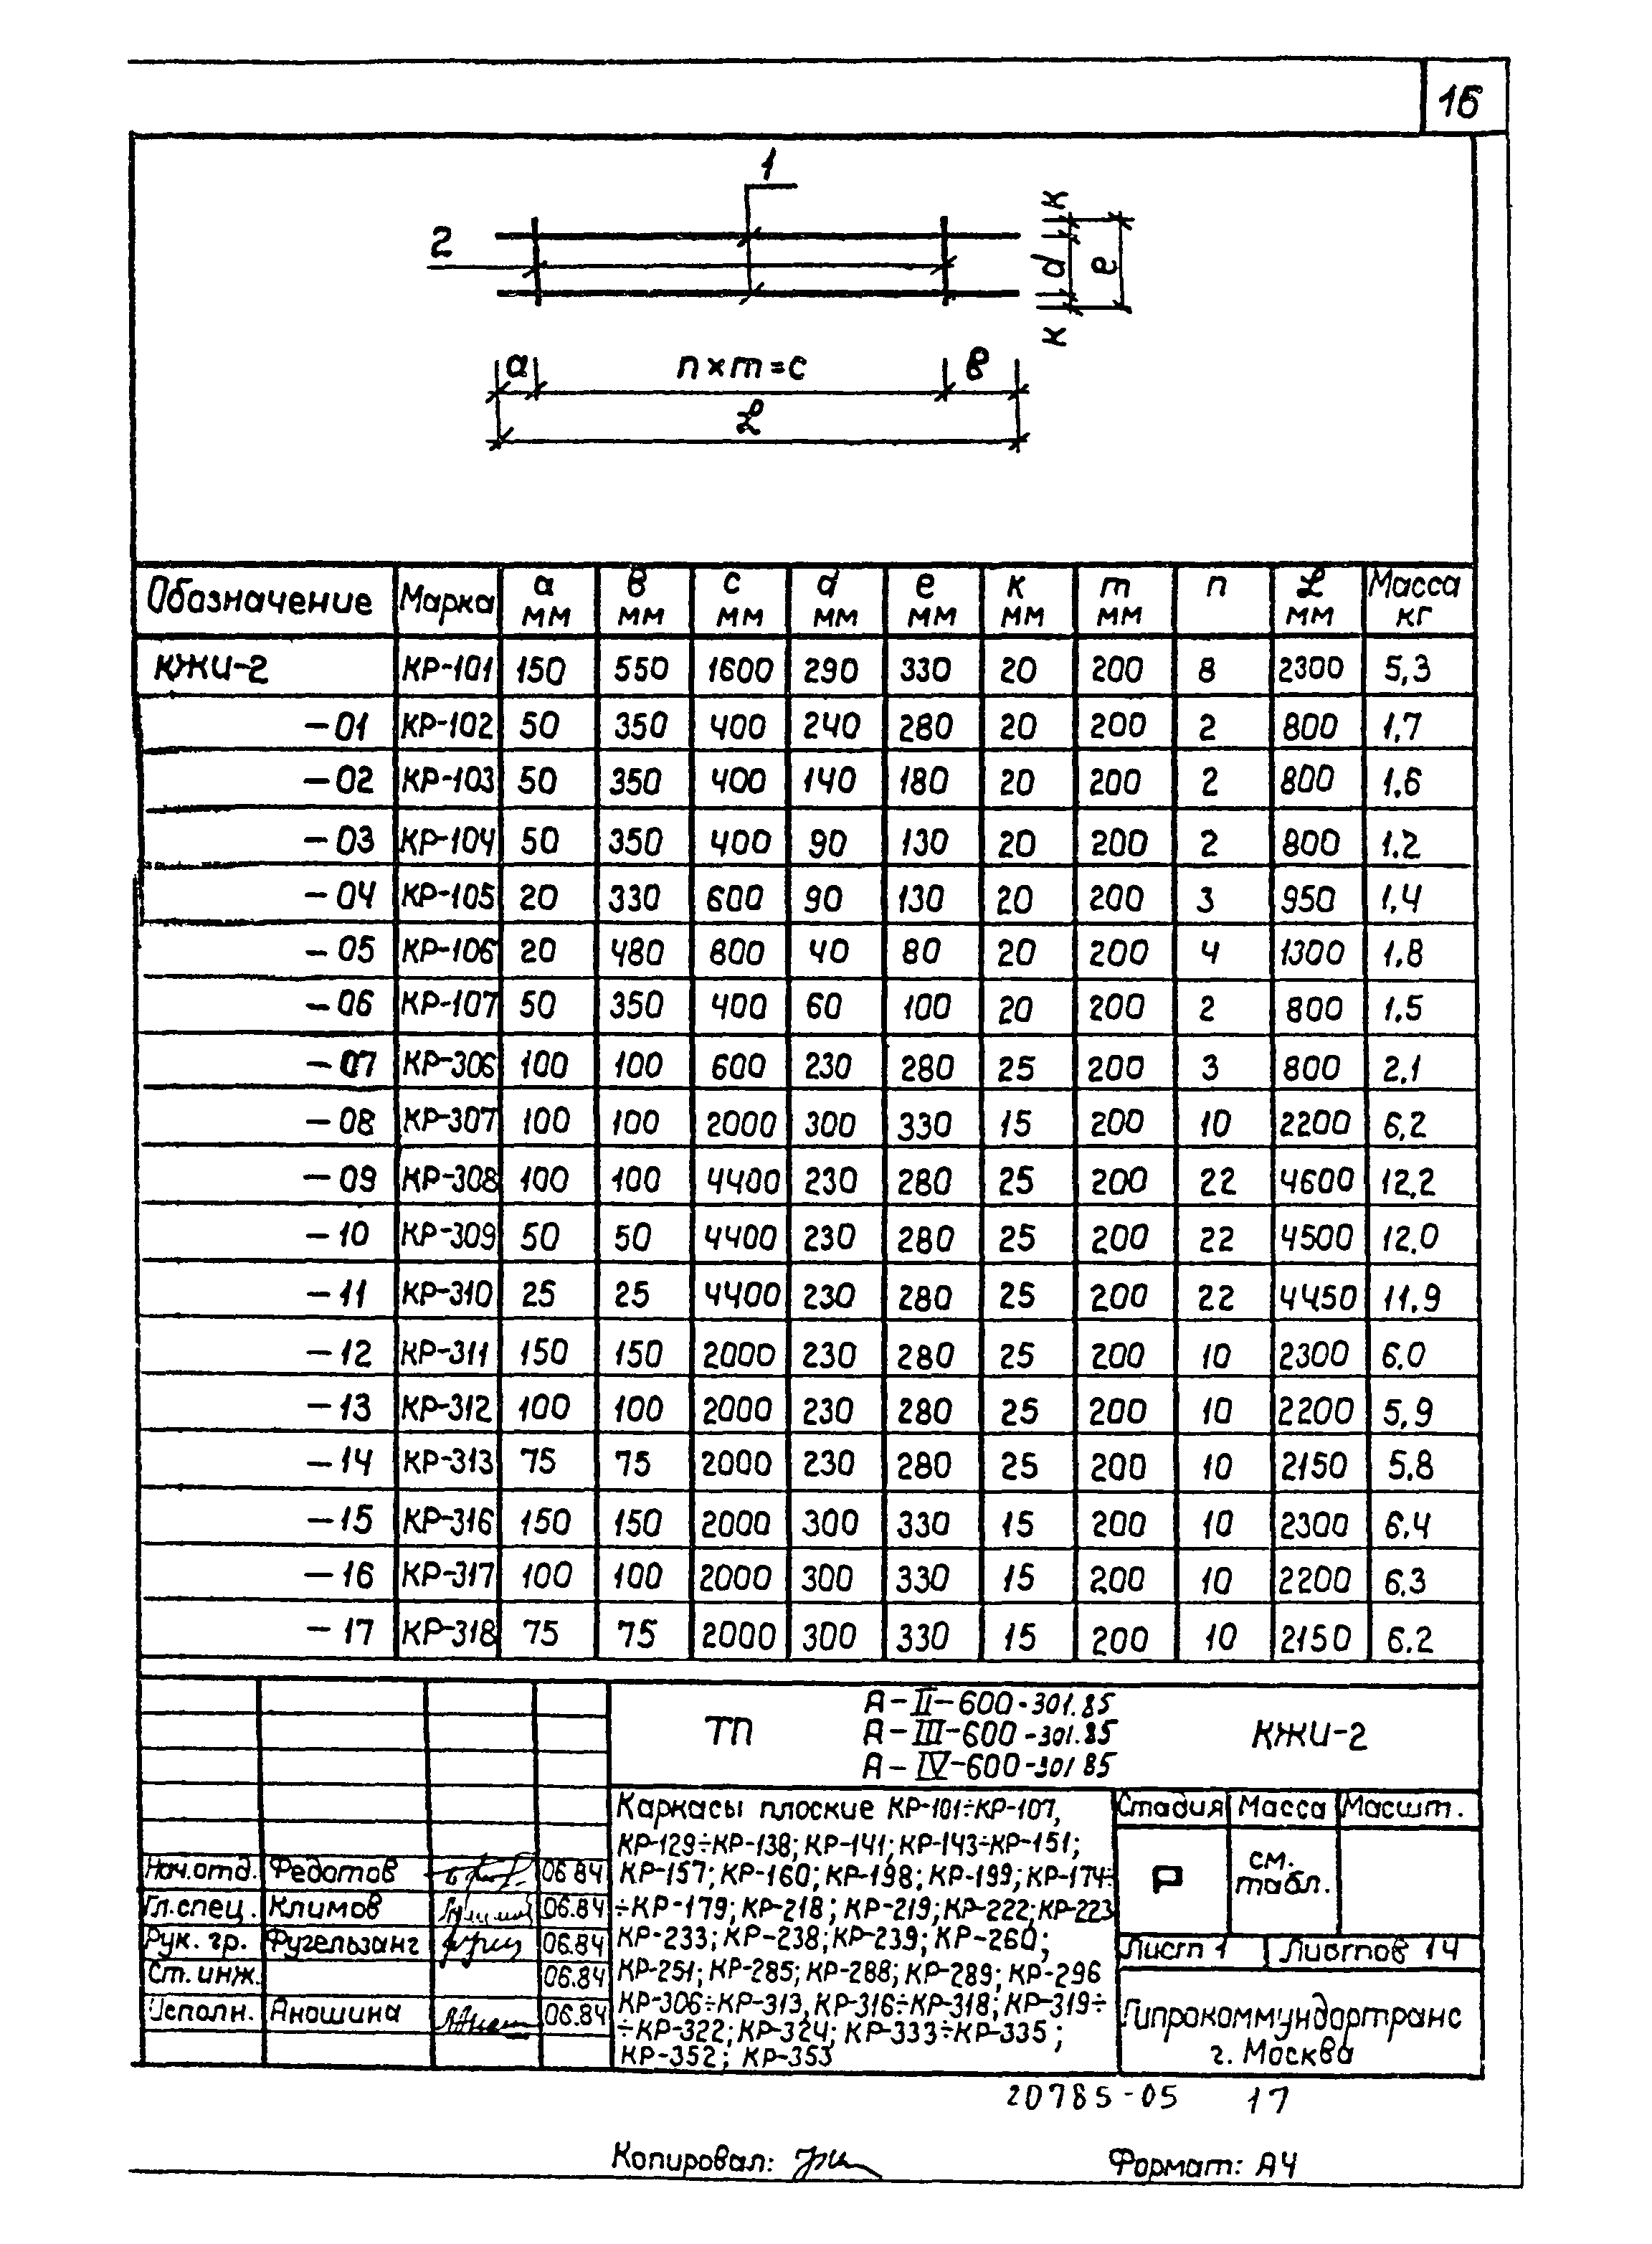 16
1
2
к
d
e
к
a
n×m=c
в
L
Обозначение Марка a мм в мм c мм d мм e мм к мм m мм n L мм Масса кг
КЖИ-2 КР-101 150 550 1600 290 330 20 200 8 2300 5,3
-01 КР-102 50 350 400 240 280 20 200 2 800 1,7
-02 КР-103 50 350 400 140 180 20 200 2 800 1.6
-03 КР-104 50 350 400 90 130 20 200 2 800 1.2
-04 КР-105 20 330 600 90 130 20 200 3 950 1,4
-05 КР-106 20 480 800 40 80 20 200 4 1300 1,8
-06 КР-107 50 350 400 60 100 20 200 2 800 1.5
-07 КР-306 100 100 600 230 280 25 200 3 800 2.1
-08 КР-307 100 100 2000 300 330 15 200 10 2200 6,2
-09 КР-308 100 100 4400 230 280 25 200 22 4600 12,2
-10 КР-309 50 50 4400 230 280 25 200 22 4500 12,0
-11 КР-310 25 25 4400 230 280 25 200 22 4450 11,9
-12 КР-311 150 150 2000 230 280 25 200 10 2300 6.0
-13 КР-312 100 100 2000 230 280 25 200 10 2200 5,9
-14 КР-313 75 75 2000 230 280 25 200 10 2150 5.8
-15 КР-316 150 150 2000 300 330 15 200 10 2300 6.4
-16 КР-317 100 100 2000 300 330 15 200 10 2200 6,3
-17 КР-318 75 75 2000 300 330 15 200 10 2150 6.2
ТП
А-II-600-301.85
А-III-600-301.85
А-IV-600-301 85
КЖИ-2
Каркасы плоские КР-101÷КР-107,
КР-129÷КР-138; КР-141; КР-143÷КР-151;
КР-157; КР-160; КР-198; КР-199; КР-174÷
÷КР-179; КР-218; КР-219; КР-222; КР-223
КР-233; КР-238; КР-239; КР-260;
КР-251; КР-285; КР-288; КР-289; КР-296
КР-306÷КР-313, КР-316÷КР-318; КР-319÷
÷КР-322; КР-324; КР-333÷КР-335;
КР-352; КР-353
Стадия Масса Масшт.
Р см. табл.
Лист 1 Листов 14
Гипрокоммундортранс
г. Москва
Нач.отд. Федотов 06 84
Гл.спец. Климов 06.84
Рук. гр. Фугельзанг 06.84
Ст. инж. 06.84
Исполн. Аношина 06.84
20785-05 17
Копировал: Формат: А4